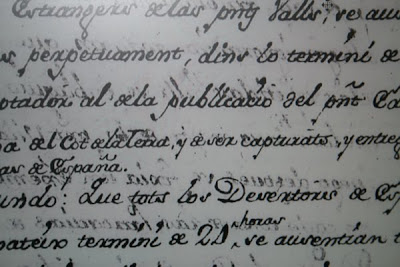 Estrangers de las pnts Valls, se aus
s perpetuament, dins lo termini de
otador al de la publicació del pnt Ca
pa de Cot de la Terra, y de ser capturats, y entreg
as de España.
undó: Que tots los Desertors de Esp
pateix termini de 24 horas, se ausentian t